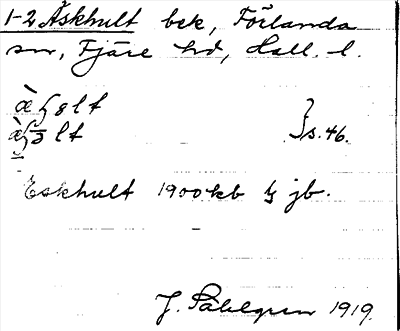 1-2 Äskhult bek, Förlanda
sn, Fjäre hd, Hall. l.
lt
lt } s. 46.
Eskhult 1900 kb jb.
J. Sahlgren 1919.